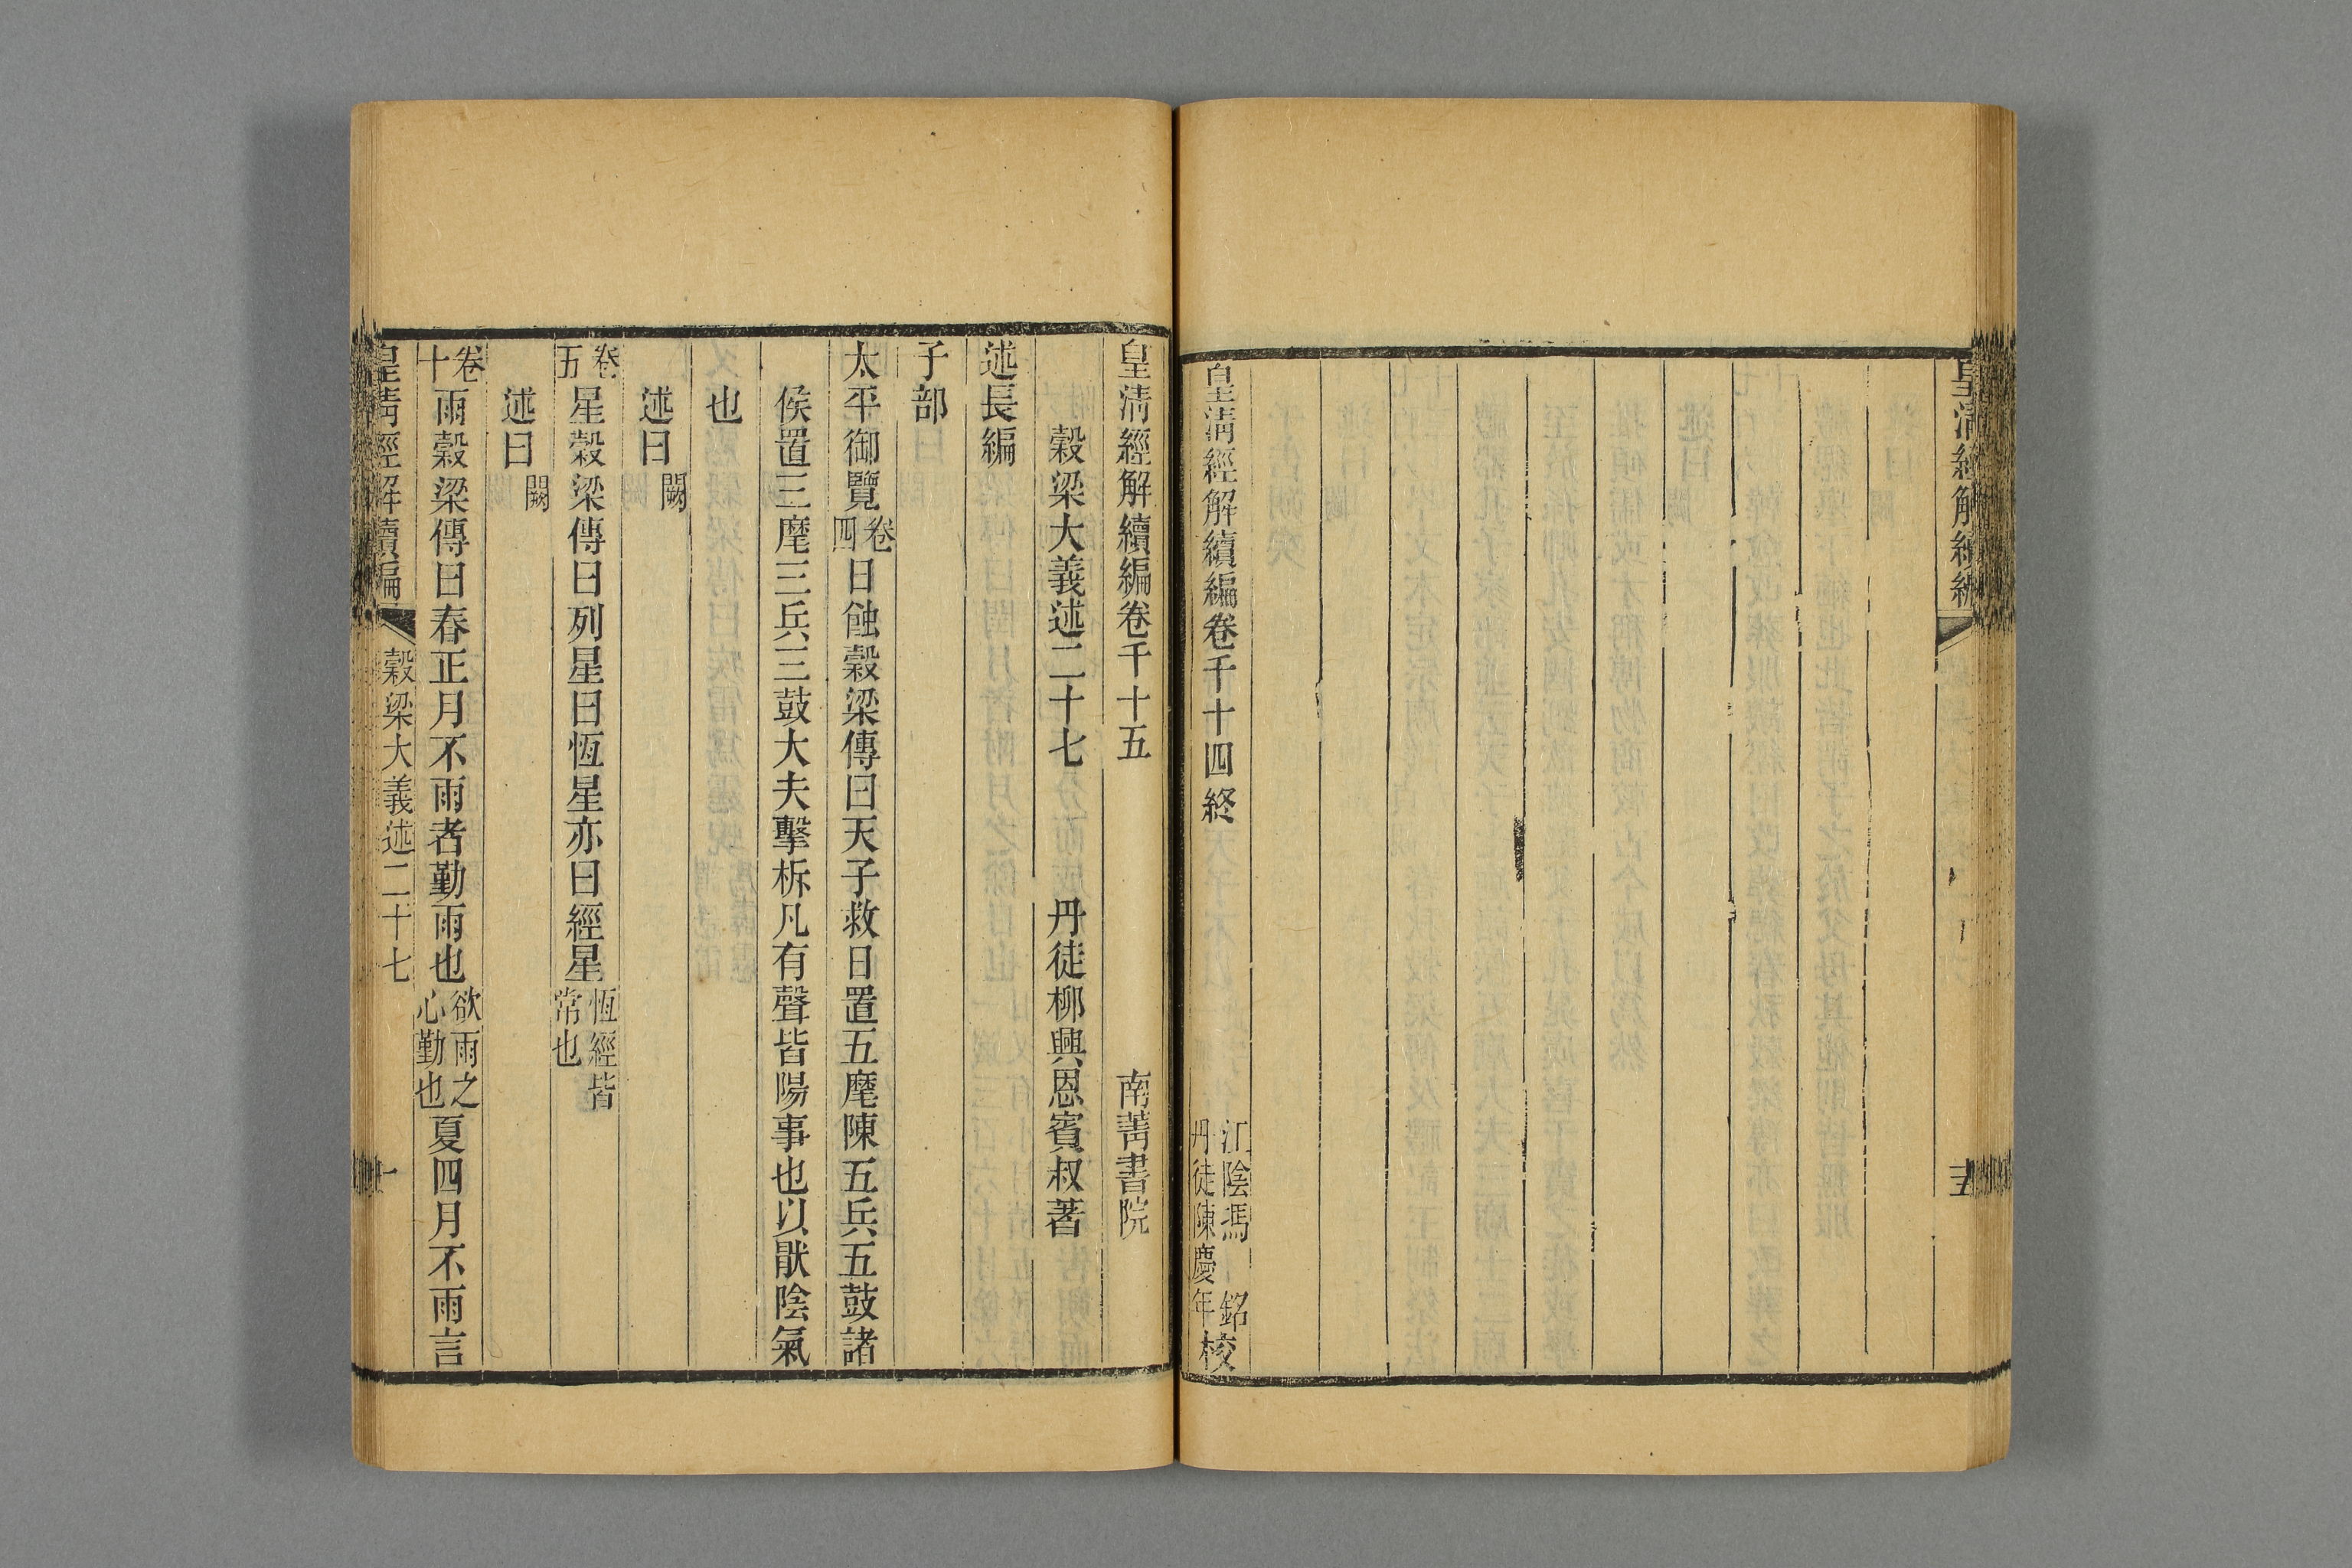 皇清經解續編
皇清經解續編卷千十四終
江陰馮 銘
丹徒陳慶年校
皇清經解續編卷千十五 南菁書院
穀梁大義述二十七 丹徒柳興恩賓叔著
述長編
子部
太平御覽卷四日蝕穀梁傳曰天子救日置五麾陳五兵五鼓諸
侯置三麾三兵三鼓大夫擊柝凡有聲皆陽事也以厭陰氣
也
述曰闕
卷五星穀梁傳曰列星曰恆星亦曰經星恆經皆常也
述曰闕
卷十雨穀梁傳曰春正月不雨者勤雨也欲雨之心勤也夏四月不雨言
皇清經解續編 穀梁大義述二十七 一